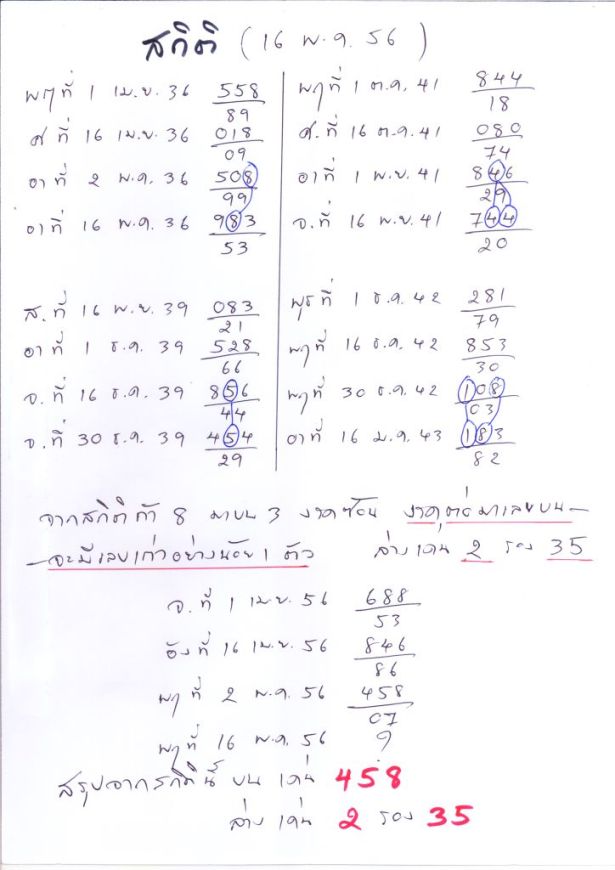 สถิติ (16 พ.ค. 56)
พฤที่ 1 เม.ย. 36 558
89
ศ ที่ 16 เม.ย. 36 018
09
อาที่ 2 พ.ค. 36 508
99
อาที่ 16 พ.ค. 36 983
53
พฤที่ 1 ต.ค. 41 844
18
ศ.ที่ 16 ต.ค. 41 080
74
อาที่ 1 พ.ย. 41 846
29
จ.ที่ 16 พ.ย. 41 744
20
ส.ที่ 16 พ.ย. 39 083
21
อาที่ 1 ธ.ค. 39 528
66
จ.ที่ 16 ธ.ค. 39 856
44
จ.ที่ 30 ธ.ค. 39 454
29
พุธที่ 1 ธ.ค. 42 281
79
พฤที่ 16 ธ.ค. 42 853
30
พฤที่ 30 ธ.ค. 42 108
03
อาที่ 16 ม.ค. 43 183
82
จากสถิติถ้า 8 มาบน 3 งวดซ้อน งวดต่อมาเลขบน
จะมีเลขเก่าอย่างน้อย 1 ตัว ล่างเด่น 2 รอง 35
จ.ที่ 1 เม.ย. 56 688
53
อังที่ 16 เม.ย. 56 846
86
พฤที่ 2 พ.ค. 56 458
07
พฤที่ 16 พ.ค. 56 ?
สรุปจากสถิตินี้ บน เด่น 458
ล่าง เด่น 2 รอง 35